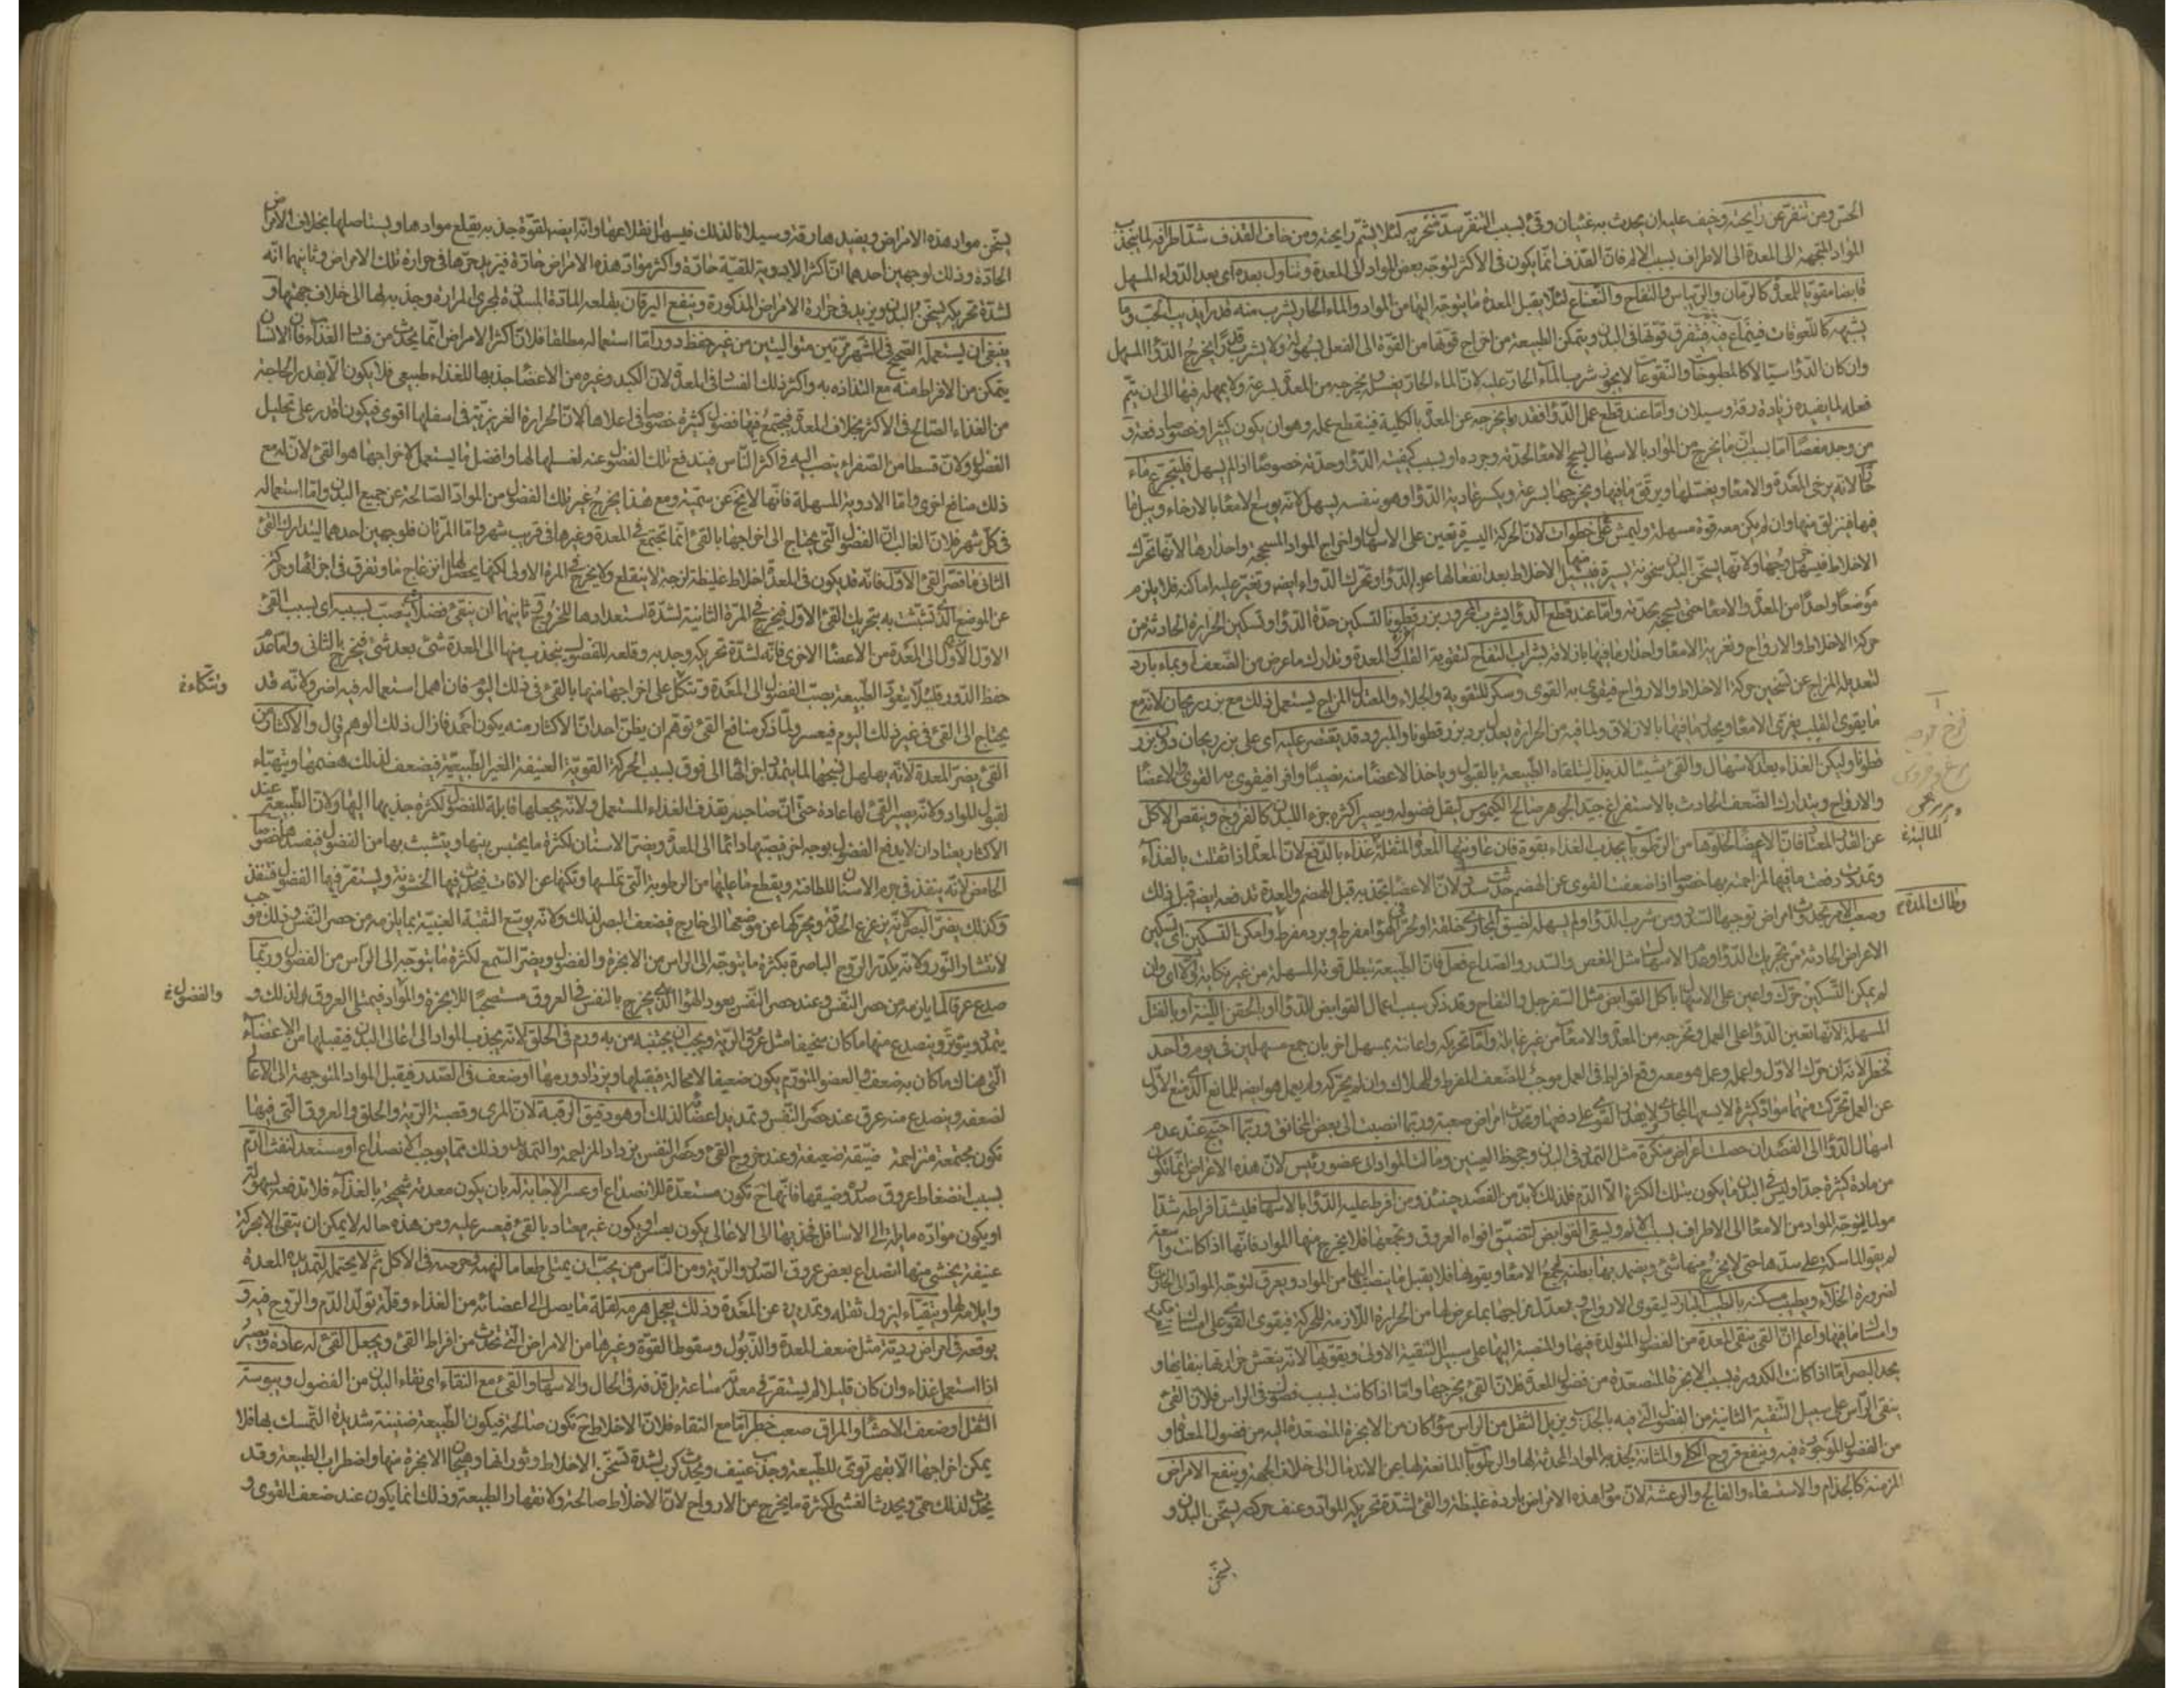 الحس ومن تنفر عن رايحته وخيف عليه ان يحدث به غثيان وقئ بسبب التنفر سد منخريه لئلا يشم رايحته ومن خاف القذف شد اطرافه لما ينجذب
المواد المتجهة الى المعدة الى الاطراف بسبب الالم فان القذف انما يكون في الاكثر لتوجه بعض المواد الى المعدة وتناول بعده اى بعد الدواء المسهل
قابضا مقويا للمعدة كالرمان والريباس والتفاح والنعناع لئلا يقبل المعدة ما يتوجه اليها من المواد والماء الحار يشرب منه قدر ما يذيب الحب وما
يشبهه كاللعوقات فيتماع فيه فيتفرق قوتها في البدن ويتمكن الطبيعة من اخراج قوتها من القوة الى الفعل بسهولة ولا يشرب قدرا يخرج الدواء المسهل
وان كان الدواء سيالا كالمطبوخات والنقوعات لا يجوز شرب الماء الحار عليه لان الماء الحار يغسله ويخرجه من المعدة بسرعة ولا يمهله فيها الى ان يتم
فعله لما يفيده زيادة رقة وسيلان واما عند قطع عمل الدواء فقدر ما يخرجه عن المعدة بالكلية فينقطع عمله وهو ان يكون كثيرا وخصوصا دفعة و
من وجد مغصا اما بسبب ان ما يخرج من المواد بالاسهال يسحج الامعاء لحدته وجرده او بسبب كيفية الدواء وحدته خصوصا اذا لم يسهل فليتجرع ماء
حارا لانه يرخى المعدة والامعاء ويغسلها ويرقق ما فيها ويخرجها بسرعة ويكسر عادية الدواء وهو بنفسه يسهل لانه يوسع الامعاء بالارخاء ويسيل ما
فيها فينزلق منها وان لم يكن معه قوة مسهلة وليمش خطوات لان الحركة اليسيرة تعين على الاسهال واخراج المواد المسحجة واحدارها لانها تحرك
الاخلاط فيسهل خروجها ولانها يسخن البدن سخونة يسيرة فيسيل الاخلاط بعد انفعالها عن الدواء وتحرك الدواء ايضا وتغير عليه اماكنه فلا يلزم
موضعا واحدا من المعدة والامعاء حتى يسحجه بحدته واما عند قطع الدواء يشرب المحرور بزر قطونا لتسكين حدة الدواء وتسكين الحرارة الحادثة من
حركة الاخلاط والارواح وتغرية الامعاء واحدار ما فيها بازلاقه بشراب التفاح لتقوية القلب والمعدة وتدارك ما عرض من الضعف او بماء بارد
لتعديله المزاج عن تسخين حركة الاخلاط والارواح فيقوى به القوى وسكر للتقوية والجلاء والمعتدل المزاج يستعمل ذلك مع بزر ريحان لانه مع
ما يقوى القلب يغرى الامعاء ويحلل ما فيها بالازلاق ولما فيه من الحرارة يعدل برد بزر قطونا والمبرود قد يقتصر عليه اى على بزر ريحان دون بزر
قطونا وليكن الغذاء بعد الاسهال والقئ شيئا لذيذا ليتلقاه الطبيعة بالقبول وياخذ الاعضاء منه نصيبا وافرا فيقوى به القوى والاعضاء
والارواح ويتدارك الضعف الحادث بالاستفراغ جيد الجوهر صالح الكيموس ليقل فضوله ويصير اكثره جزء البدن كالفروج وينقص الاكل
عن القدر المعتاد فان الاعضاء لخلوها من الرطوبات يجذب الغذاء بقوة فان عاونتها المعدة المثقلة غذاء بالدفع لان المعدة اذا ثقلت بالغذاء
وتمددت دفعت ما فيها لمزاحمته بها خصوصا اذا ضعفت القوى عن الهضم حدثت سدد لان الاعضاء تجذبه قبل الهضم والمعدة تدفعه ايضا قبل ذلك
الاعراض الحادثة من تحريك الدواء وعدم الاسهال مثل المغص والسدر والصداع فعل فان الطبيعة تبطل قوته المسهلة من غير نكاية
لم يمكن التسكين حرك واعين على الاسهال باكل القوابض مثل السفرجل والتفاح وقد ذكر سبب اعمال القوابض للدواء او بالحقن اللينة او بالفتل
المسهلة لانها تعين الدواء على العمل وتخرجه من المعدة والامعاء من غير غائلة واما تحريكه واعانته بمسهل اخر بان جمع مسهلين في يوم واحد
فخطر لانه ان حرك الاول واعمله وعمل هو معه وقع افراط في العمل موجب للضعف المفرط والهلاك وان لم يحركه ولم يعمل هو ايضا للمانع الذى منع الاول
عن العمل تحركت منهما مواد كثيرة لا يسعها المجارى ولا يقدر القوى على دفعها وتحدث امراض صعبة وربما انصبت الى بعض المخانق وربما احتيج عند عدم
اسهال الدواء الى الفصد ان حصلت اعراض منكرة مثل التمدد في البدن وجحوظ العينين ومالت المواد الى عضو رئيس لان هذه الاعراض انما تكون
من مادة كثيرة جدا وليس في البدن ما يكون بتلك الكثرة الا الدم فلذلك لا بد من الفصد حينئذ ومن افرط عليه الدواء بالاسهال فليشد اطرافه شدا
مولما ليتوجه المواد من الامعاء الى الاطراف بسبب الالم ويسقى القوابض لتضيق افواه العروق وتجمعها فلا يخرج منها المواد فانها اذا كانت واسعة
لم يقو الماسكة على سدها حتى لا يخرج منها شئ ويضمد بها بطنه لتجمع الامعاء ويقويها فلا يقبل ما ينصب اليها من المواد ويعرق لتوجه المواد الى الخارج
لضرورة الخلاء ويطيب مسكنه بالطيب البارد ليقوى الارواح ويعدل مزاجها بما عرض لها من الحرارة اللازمة للحركة فيقوى القوى على امساك
وامساك ما فيها واعلم ان القئ ينقى المعدة من الفضول المتولدة فيها والمنصبة اليها على سبيل التنقية الاولى ويقويها لانه ينعش حرارتها بنقائها و
يحد البصر اما اذا كانت الكدورة بسبب الابخرة المتصعدة من فضول المعدة فلان القئ يخرجها واما اذا كانت بسبب فضول في الراس فلان القئ
ينقى الراس على سبيل التنقية الثانية من الفضول التى فيه بالجذب ويزيل الثقل من الراس سواء كان من الابخرة المتصعدة اليه من فضول المعدة او
من الفضول الموجودة فيه وينفع قروح الكلى والمثانة لجذبه المواد المحدثة لها والرطوبات المانعة لها عن الاندمال الى خلاف الجهة وينفع الامراض
المزمنة كالجذام والاستسقاء والفالج والرعشة لان مواد هذه الامراض باردة غليظة والقئ لشدة تحريكه للمواد وعنف حركته يسخن البدن و
يسخن
وطالت المدة
يسخن مواد هذه الامراض ويفيدها رقة وسيلانا لذلك فيسهل انقلاعها وانه ايضا لقوة جذبه يقلع موادها ويستاصلها بخلاف الامراض
الحادة وذلك لوجهين احدهما ان اكثر الادوية المقيئة حادة واكثر مواد هذه الامراض حادة فيزيد حرها في حرارة تلك الامراض وثانيهما انه
لشدة تحريكه يسخن البدن ويزيد في حرارة الامراض المذكورة وينفع اليرقان بقلعه المادة المسددة لمجرى المرارة وجذبه لها الى خلاف جهتها و
ينبغى ان يستعمله الصحيح في الشهر مرتين متواليتين من غير حفظ دور اما استعماله مطلقا فلان اكثر الامراض انما يحدث من فساد الغذاء فان الانسان
يتمكن من الافراط منه مع التذاذه به واكثر ذلك الفساد في المعدة لان الكبد وغيره من الاعضاء جذبها للغذاء طبيعى فلا يكون الا بقدر الحاجة
من الغذاء الصالح في الاكثر بخلاف المعدة فيجتمع فيها فضول كثيرة خصوصا في اعلاها لان الحرارة الغريزية في اسفلها اقوى فيكون اقدر على تحليل
الفضول ولان قسطا من الصفراء ينصب اليه في اكثر الناس فيندفع تلك الفضول عنه لغسلها لها وافضل ما يستعمل لاخراجها هو القئ لان له مع
ذلك منافع اخرى واما الادوية المسهلة فانها لا يخ عن سمية ومع هذا يخرج غير تلك الفضول من المواد الصالحة عن جميع البدن واما استعماله
في كل شهر فلان الغالب ان الفضول التى يحتاج الى اخراجها بالقئ انما تجتمع في المعدة وغيرها في قريب شهر واما المرتان فلوجهين احدهما ليتدارك القئ
الثانى ما قصر القئ الاول فانه قد يكون في المعدة اخلاط غليظة لزجة لا ينقلع ولا يخرج في المرة الاولى لكنها يحصل لها انزعاج ما وتفرق في اجزائها وحركة
عن الموضع الذى تشبثت به بتحريك القئ الاول فيخرج في المرة الثانية لشدة استعدادها للخروج وثانيهما ان ينقى فضل ينصب بسببه اى بسبب القئ
الاول الى المعدة من الاعضاء الاخرى فانه لشدة تحريكه وجذبه وقلعه للفضول ينجذب منها الى المعدة شئ بعد شئ فيخرج بالثانى واما عدم
حفظ الدور فلئلا يتعود الطبيعة بصب الفضول الى المعدة وتتكل على اخراجها منها بالقئ في ذلك اليوم فان اهمل استعماله فيه اضر ولانه قد
يحتاج الى القئ في غير ذلك اليوم فيعسر ولما ذكر منافع القئ توهم ان يظن احد ان الاكثار منه يكون احمد فازال ذلك الوهم وقال والاكثار من
القئ يضر المعدة لانه يهلهل نسجها لما يتمدد اجزائها الى فوق بسبب الحركة القوية العنيفة الغير الطبيعية فيضعف لذلك هضمها ويتهياء
لقبول المواد ولانه يصير القئ لها عادة حتى ان صاحبه يقذف الغذاء المستعمل ولانه يجعلها قابلة للفضول لكثرة جذبها اليها ولان الطبيعة عند
الاكثار يعتاد ان لا يدفع الفضول بوجه اخر فيصبها دائما الى المعدة ويضر الاسنان لكثرة ما يحتبس بينها ويتشبث بها من الفضول فيفسدها خصوصا
الحامض لانه ينفذ في جرم الاسنان للطافته ويقطع ما عليها من الرطوبة التى تملسها وتكنها عن الافات فيحدث فيها الخشونة ويستقر فيها الفضول فتنفذ
وكذلك يضر البصر لانه يزعزع الحدقة ويحركها عن موضعها الى خارج فيضعف البصر لذلك ولانه يوسع الثقبة العنبية بما يلزمه من حصر النفس وذلك موجب
لانتشار النور ولانه يكدر الروح الباصرة بكثرة ما يتوجه الى الراس من الابخرة والفضول ويضر السمع لكثرة ما يتوجه الى الراس من الفضول وربما
صدع عرقا لما يلزمه من حصر النفس وعند حصر النفس يعود الهواء الذى يخرج بالنفس في العروق مستصحبا للابخرة والمواد فيمتلى العروق لذلك و
يتمدد ويتوتر وينصدع منها ما كان سخيفا مثل عرق الرية ويجب ان يجتنبه من به ورم في الحلق لانه يجذب المواد الى اعالى البدن فيقبلها من الاعضاء
التى هناك ما كان به ضعف والعضو المتورم يكون ضعيفا لا محالة فيقبلها ويزداد ورمها او ضعف في الصدر فيقبل المواد المتوجهة الى الاعالى
لضعفه وينصدع منه عرق عند حصر النفس وتمديد اعضائه لذلك او هو دقيق الرقبة لان المرى وقصبة الرية والحلق والعروق التى فيها
تكون مجتمعة متزاحمة ضيقة ضعيفة وعند خروج القئ وحصر النفس يزداد المزاحمة والتمدد وذلك مما يوجب الانصداع او مستعد لنفث الدم
بسبب انضغاط عروق صدره وضيقها فانها ح تكون مستعدة للانصداع او عسر الاجابة له بان يكون معدته شحيحة بالغذاء فلا تدفعه بسهولة
او يكون مواده مايلة الى الاسافل فجذبها الى الاعالى يكون بعسر او يكون غير معتاد بالقئ فيعسر عليه ومن هذه حاله لا يمكن ان يتقيا الا بحركة
عنيفة يخشى منها انصداع بعض عروق الصدر والرية ومن الناس من يحب ان يمتلى طعاما لنهمه وحرصه في الاكل ثم لا يحتمله لتمديده المعدة
وايلامه لها ويتقياء لنزول ثقله وتمديده عن المعدة وذلك يعجل هرمه لقلة ما يصل الى اعضائه من الغذاء وقلة تولد الدم والروح فيه و
يوقعه في امراض رديئة مثل ضعف المعدة والذبول وسقوط القوة وغيرها من الامراض التى تحدث من افراط القئ ويجعل القئ له عادة ويصير
اذا استعمل غذاء وان كان قليلا لم يستقر في معدته ساعة بل قذفه في الحال والاسهال والقئ مع النقاء اى نقاء البدن من الفضول ويبوسة
الثفل او ضعف الاحشاء والمراق صعب خطر اما مع النقاء فلان الاخلاط ح تكون صالحة فيكون الطبيعة ضنينة شديدة التمسك بها فلا
يمكن اخراجها الا بقهر قوى للطبيعة وجذب عنيف ويحدث كرب لشدة تسخن الاخلاط وثورانها وهيجان الابخرة منها واضطراب الطبيعة وقد
يحدث لذلك حمى ويحدث الغشى لكثرة ما يخرج من الارواح لان الاخلاط صالحة ولانقهار الطبيعة وذلك انما يكون عند ضعف القوى و
وتتكاء
والفضول